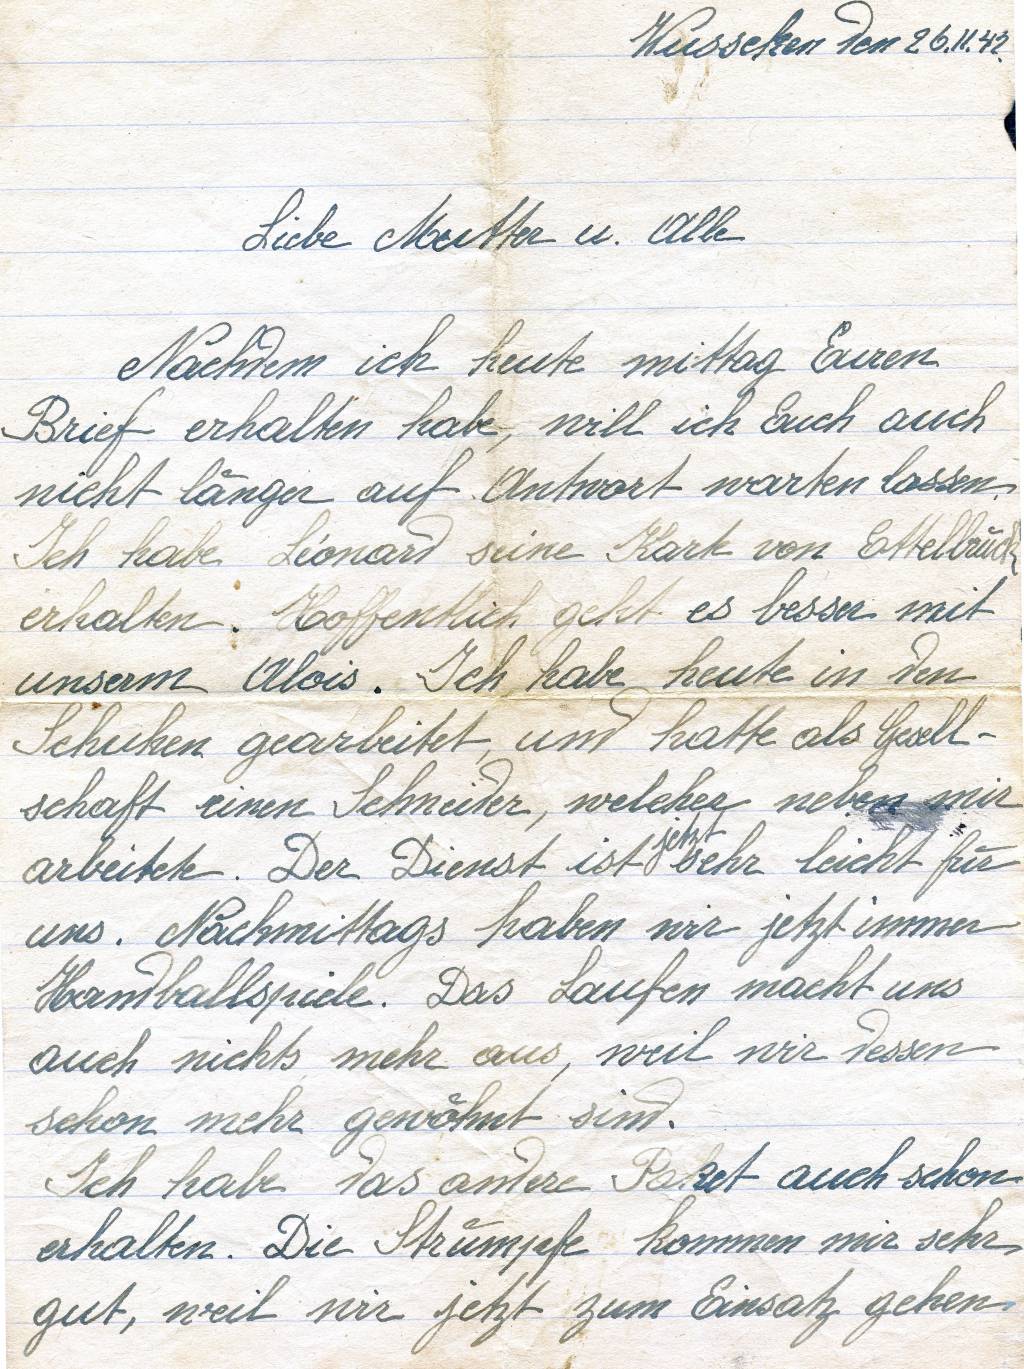 Wusseken den 26.11.42.
Liebe Mutter u. Alle
Nachdem ich heute mittag Euren
Brief erhalten habe, will ich Euch auch
nicht länger auf Antwort warten lassen.
Ich habe Léonard seine Kart von Ettelbrück
erhalten. Hoffentlich geht es besser mit
unserm Alois. Ich habe heute in den
Schuhen gearbeitet, und hatte als Gesell-
schaft einen Schneider, welcher neben mir
arbeitete. Der Dienst ist jetzt sehr leicht für
uns. Nachmittags haben wir jetzt immer
Handballspiele. Das Laufen macht uns
auch nichts mehr aus, weil wir dessen
schon mehr gewöhnt sind.
Ich habe das andere Paket auch schon
erhalten. Die Strümpfe kommen mir sehr
gut, weil wir jetzt zum Einsatz gehen